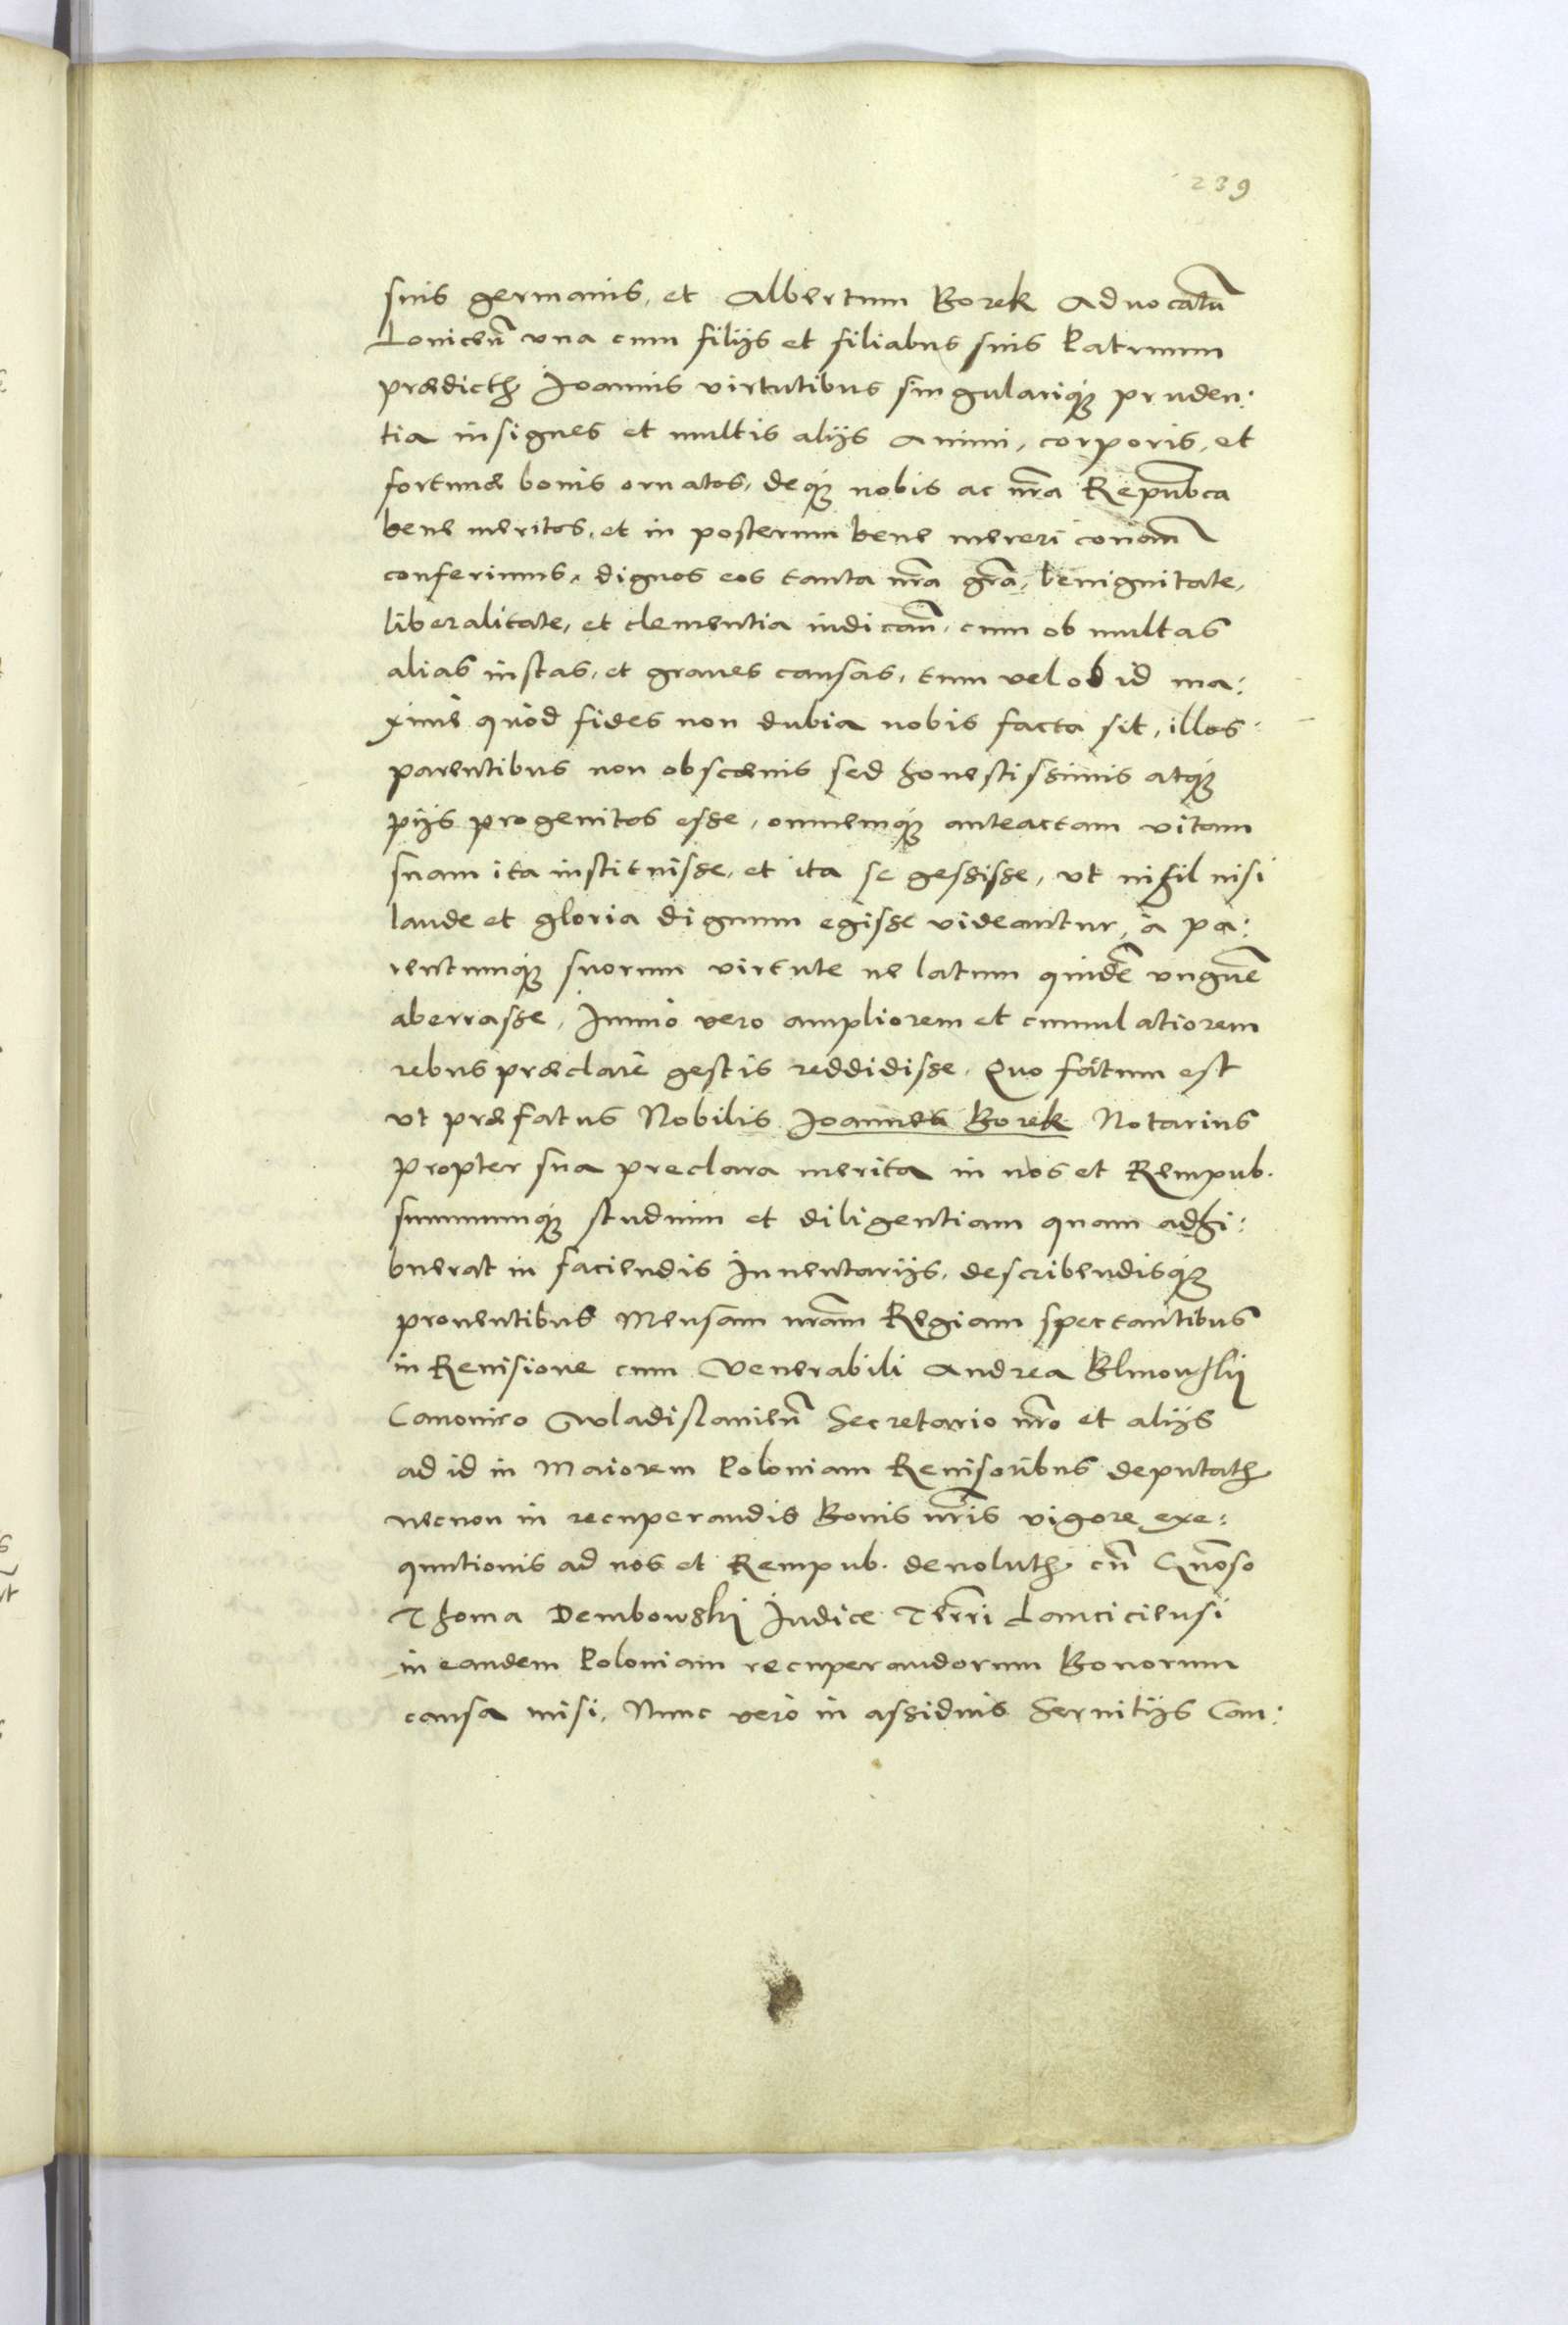 239
suis germanis, et Albertum Borek Aduocatũ
Loniceñ vna cum filijs et filiabus suis Patruum
prædicth Joannis virtutibus singulariq́ꝫ pruden:
tia insignes et multis alijs Animi, corporis, et
fortunæ bonis ornatos, deq́ꝫ nobis ac nr̃a Repũbca
bene meritos, et in posterum bene mereri conañ
conferimus, dignos eos tanta nr̃a gr̃a, benignitate,
liberalitate, et clementia iudicañ, cum ob multas
alias iustas, et graues causas, tum vel ob id ma:
ximè quòd fides non dubia nobis facta sit, illos
parentibus non obscænis sed honestissimis atq́ꝫ
pijs progenitos esse, omnemq́ꝫ anteactam vitam
suam ita instituisse, et ita se gessisse, vt nihil nisi
laude et gloria dignum egisse videantur, à pa:
rentumq́ꝫ suorum virtute ne latum quidẽ vnguẽ
aberrasse, Immò vero ampliorem et cumulatiorem
rebus præclarè gestis reddidisse. Quo factum est
vt præfatus Nobilis Joannes Borek Notarius
propter sua preclara merita in nos et Rempub.
summumq́ꝫ studium et diligentiam quam adhi:
buerat in faciendis Inuentarijs, describendisq́ꝫ
prouentibus Mensam nr̃am Regiam spectantibus
in Reuisione cum Venerabili Andrea Blinowskij
Canonico Wladislauieñ Secretario nr̃o et alijs
ad id in Maiorem Poloniam Reuisoribus deputath
necnon in recuperandis Bonis nr̃is vigore exe:
quutionis ad nos et Rempub. deuoluth cũ Gñoso
Thoma Dembowskij Iudice Terr̃i Lanciciensi
in eandem Poloniam recuperandorum Bonorum
causa misi. Nunc verò in assiduis Seruitijs Can: